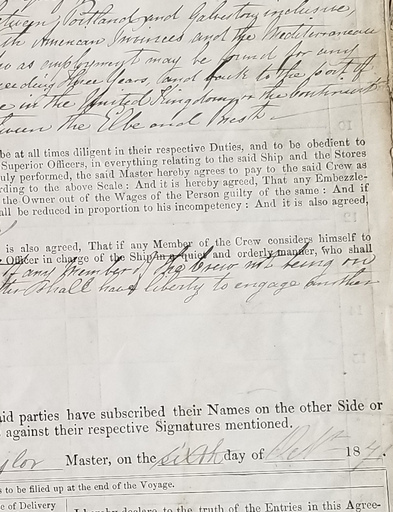 Portland and Galveston inclusive
th American Provinces and the Mediterranean
as employment may be found for any
ceeding three Years, and back to the port of
in the United Kingdom or the continent
tween the Elbe and Brest
be at all times diligent in their respective Duties, and to be obedient to
Superior Officers, in everything relating to the said Ship and the Stores
uly performed, the said Master hereby agrees to pay to the said Crew as
rding to the above Scale : And it is hereby agreed, That any Embezzle-
the Owner out of the Wages of the Person guilty of the same : And if
all be reduced in proportion to his incompetency : And it is also agreed,
is also agreed, That if any Member of the Crew considers himself to
Officer in charge of the Ship in a quiet and orderly manner, who shall
if any member of the Crew not being on
shall have liberty to engage another
aid parties have subscribed their Names on the other Side or
against their respective Signatures mentioned.
ylor Master, on the sixth day of 18
s to be filled up at the end of the Voyage.
e of Delivery
I hereby declare to the truth of the Entries in this Agree-